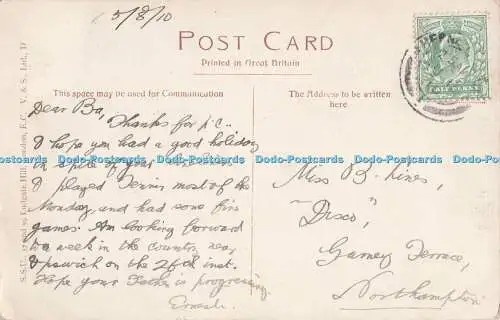 5/8/10
POST CARD
Printed in Great Britain
This space may be used for Communication
The Address to be written
here
HALF PENNY
Dear Ba,
Thanks for p.c..
I hope you had a good holiday
in spite of your
I played Tennis most of the
Monday, and had some fine
games. Am looking forward
to a week in the country, near
Ipswich on the 26th inst.
Hope your Father is progressing
Ernest.
Miss B. Hines,
"Disco",
Terrace,
Northampton
Dodo-Postcards Dodo-Postcards Dodo-Postcards Dodo-Postcards Dodo-Postcards Dodo-Postcards